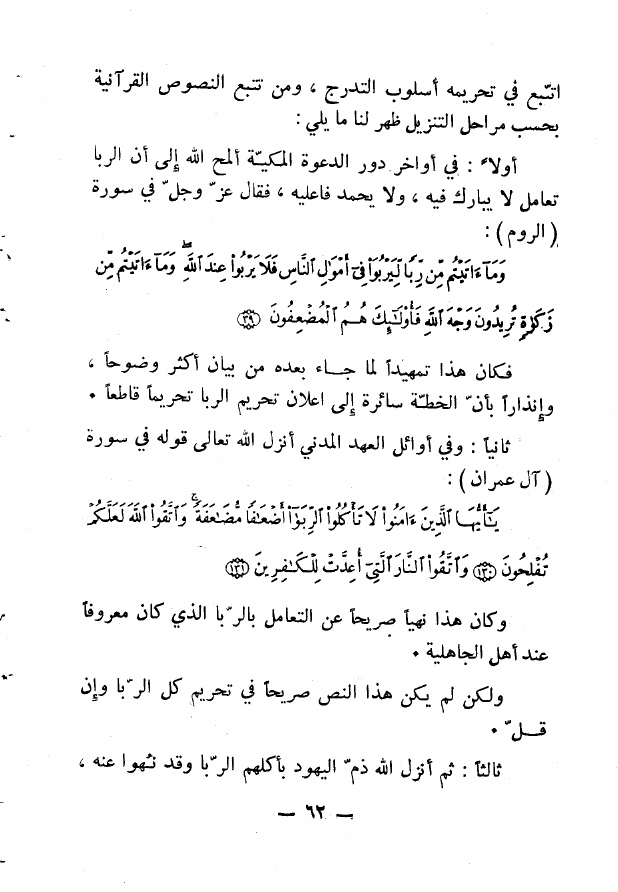 اتّبع في تحريمه أسلوب التدرج ، ومن تتبع النصوص القرآنية
بحسب مراحل التنزيل ظهر لنا ما يلي :
أولاً : في أواخر دور الدعوة المكيّة ألمح الله إلى أن الربا
تعامل لا يبارك فيه ، ولا يحمد فاعليه ، فقال عزّ وجلّ في سورة
( الروم ) :
وَمَآ ءَاتَيْتُم مِّن رِّبًا لِّيَرْبُوَا۟ فِىٓ أَمْوَٰلِ ٱلنَّاسِ فَلَا يَرْبُوا۟ عِندَ ٱللَّهِ ۖ وَمَآ ءَاتَيْتُم مِّن
زَكَوٰةٍ تُرِيدُونَ وَجْهَ ٱللَّهِ فَأُو۟لَٰٓئِكَ هُمُ ٱلْمُضْعِفُونَ ﴿٣٩﴾
فكان هذا تمهيداً لما جاء بعده من بيان أكثر وضوحاً ،
وإنذاراً بأنّ الخطّة سائرة إلى اعلان تحريم الربا تحريماً قاطعاً .
ثانياً : وفي أوائل العهد المدني أنزل الله تعالى قوله في سورة
( آل عمران ) :
يَٰٓأَيُّهَا ٱلَّذِينَ ءَامَنُوا۟ لَا تَأْكُلُوا۟ ٱلرِّبَوٰٓا۟ أَضْعَٰفًا مُّضَٰعَفَةً ۖ وَٱتَّقُوا۟ ٱللَّهَ لَعَلَّكُمْ
تُفْلِحُونَ ﴿١٣٠﴾ وَٱتَّقُوا۟ ٱلنَّارَ ٱلَّتِىٓ أُعِدَّتْ لِلْكَٰفِرِينَ ﴿١٣١﴾
وكان هذا نهياً صريحاً عن التعامل بالرّبا الذي كان معروفاً
عند أهل الجاهلية .
ولكن لم يكن هذا النص صريحاً في تحريم كل الرّبا وإن
قلّ .
ثالثاً : ثم أنزل الله ذمّ اليهود بأكلهم الرّبا وقد نُهوا عنه ،
— ٦٢ —